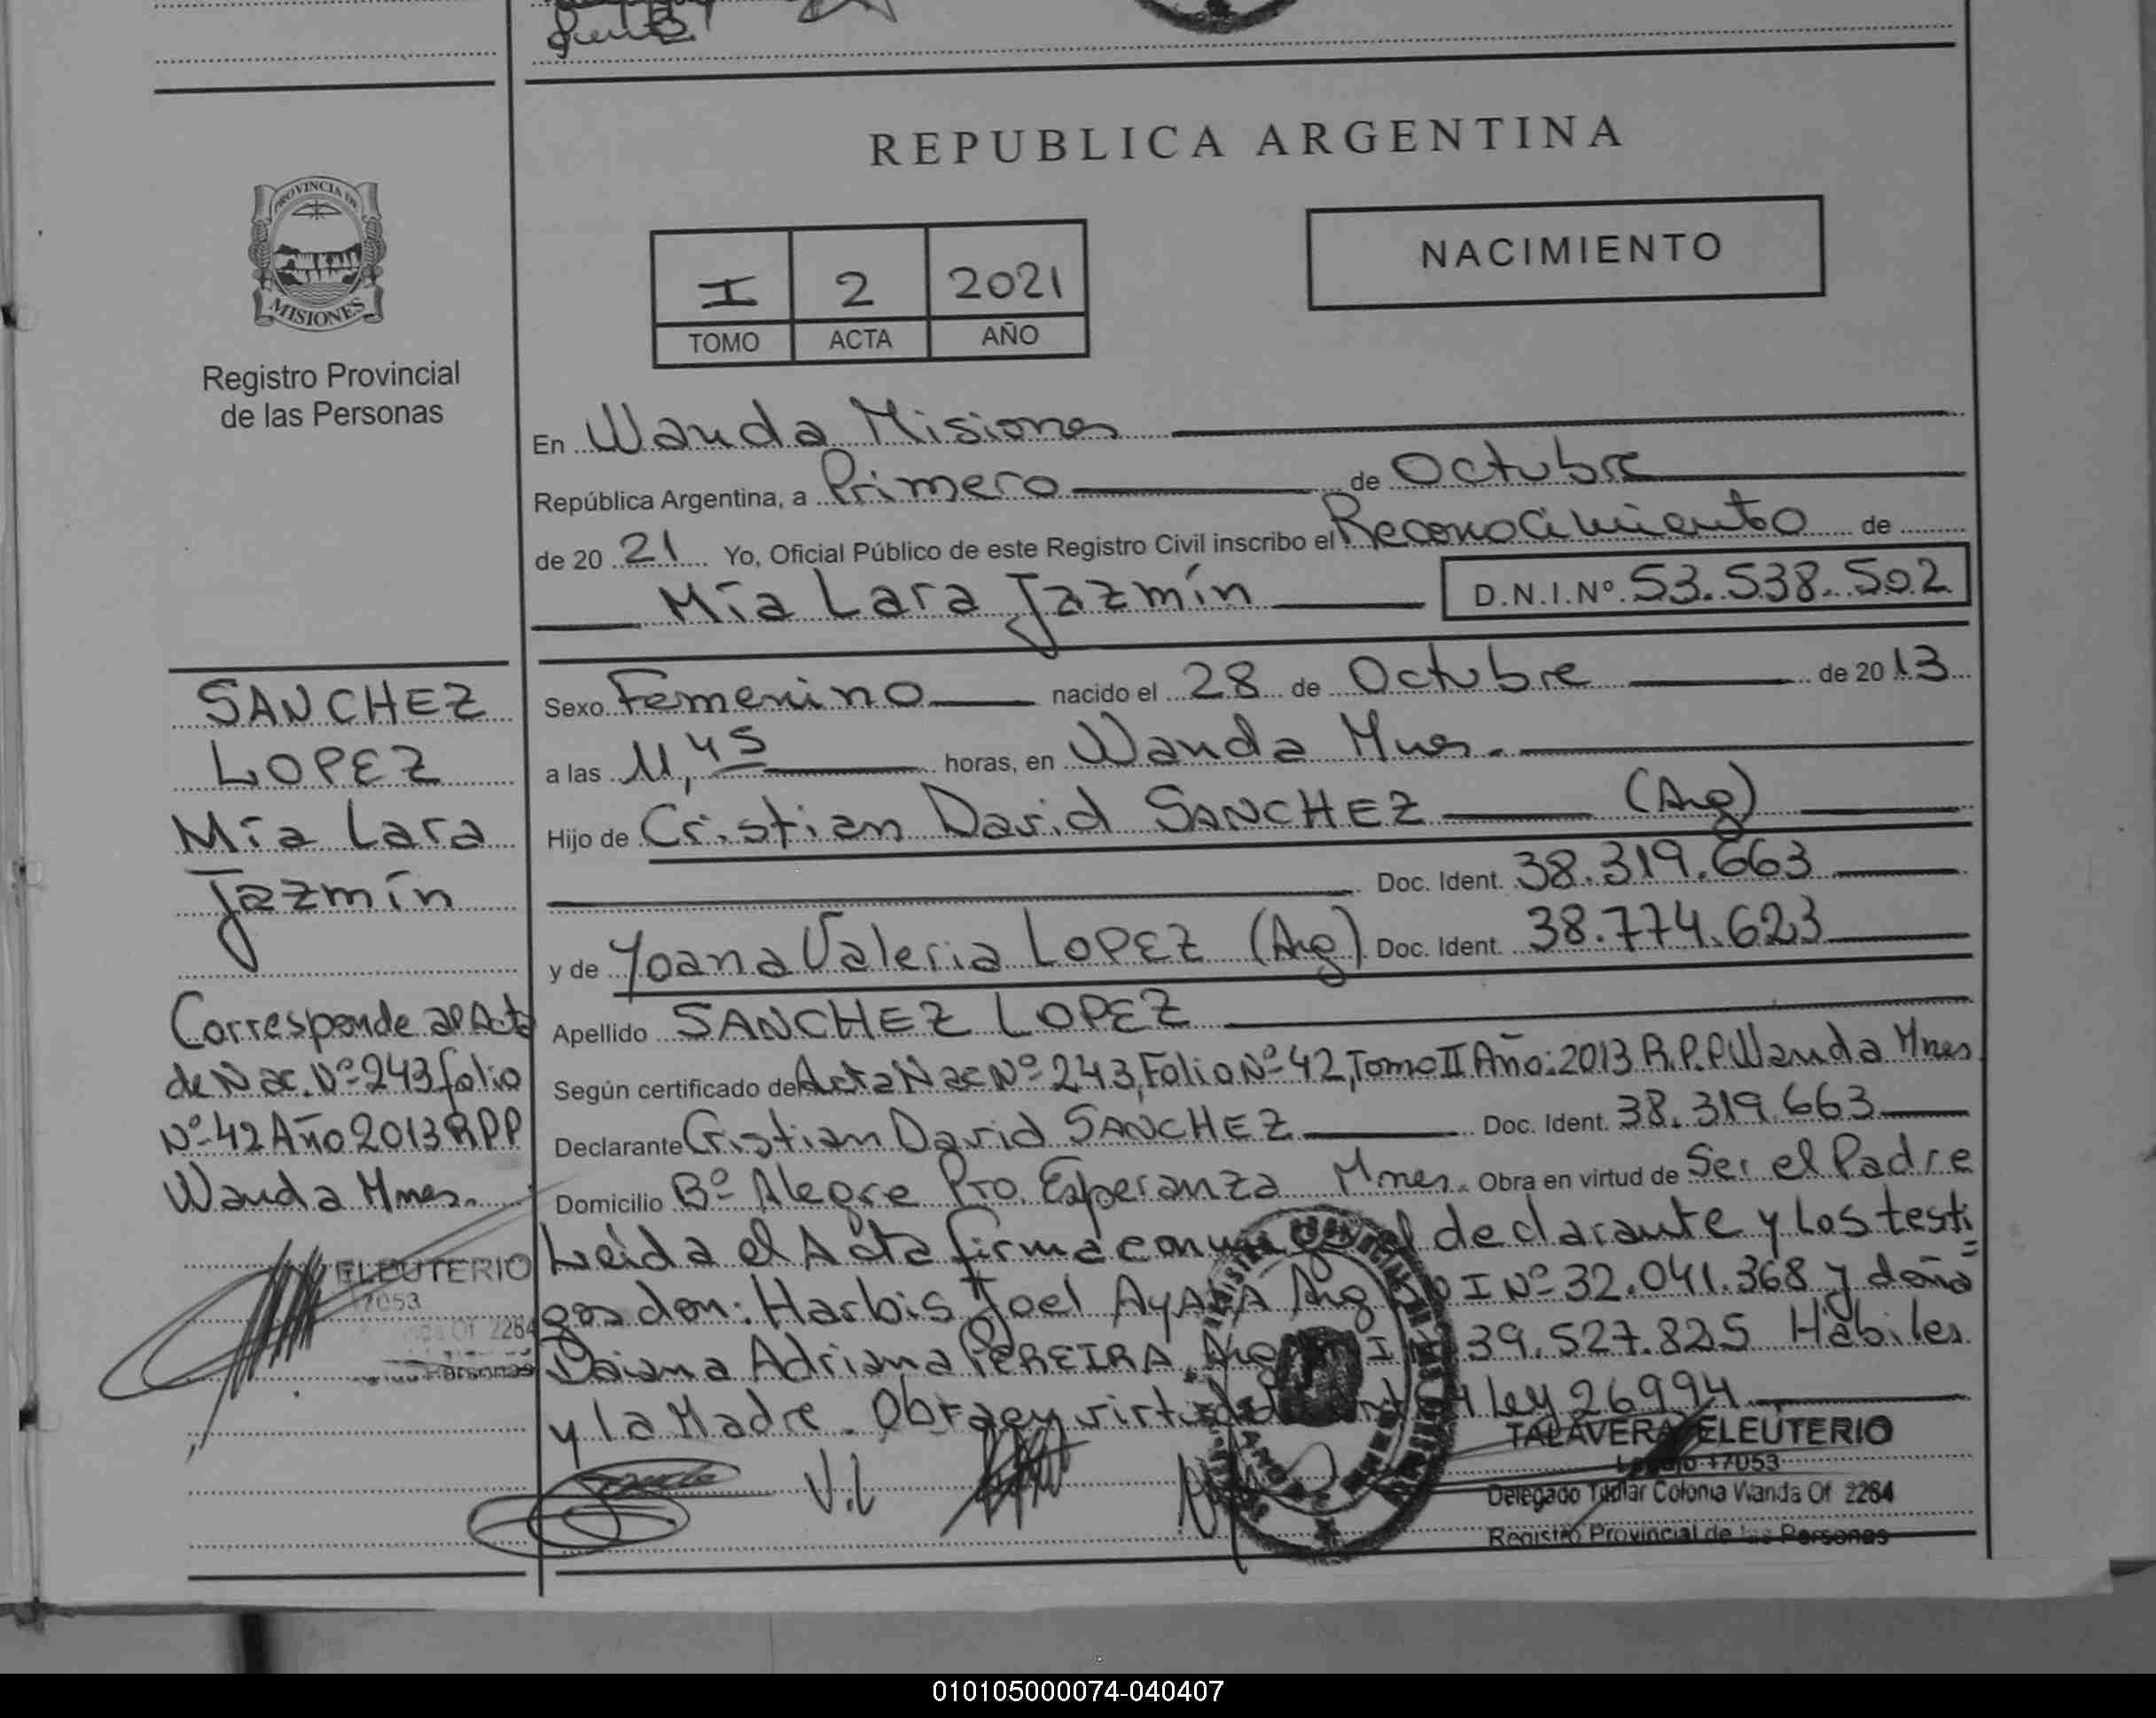 REPUBLICA ARGENTINA
PROVINCIA DE
MISIONES
Registro Provincial
de las Personas
I 2 2021
TOMO ACTA AÑO
NACIMIENTO
En Wanda Misiones
República Argentina, a Primero de Octubre
de 20 21 Yo, Oficial Público de este Registro Civil inscribo el Reconocimiento de
Mía Lara Jazmín D.N.I.Nº 53.538.502
SANCHEZ
LOPEZ
Mía Lara
Jazmín
Corresponde al Acta
de Nac. Nº 243 folio
Nº 42 Año 2013 R.P.P
Wanda Mnes.
ELEUTERIO
17053
Of 2284
Personas
Sexo Femenino nacido el 28 de Octubre de 20 13
a las 11,45 horas, en Wanda Mnes.
Hijo de Cristian David SANCHEZ (Arg)
Doc. Ident. 38.319.663
y de Yoana Valeria LOPEZ (Arg) Doc. Ident. 38.774.623
Apellido SANCHEZ LOPEZ
Según certificado de Acta Nac Nº 243, Folio Nº 42, Tomo II Año: 2013 R.P.P Wanda Mnes
Declarante Cristian David SANCHEZ Doc. Ident. 38.319.663
Domicilio Bº Alegre Pto. Esperanza Mnes. Obra en virtud de Ser el Padre
Leída el Acta firma conmigo el declarante y los testi=
gos don: Harbis Joel AYALA Arg D N I Nº 32.041.368 y doña
Daiana Adriana PEREIRA, Arg 39.527.825 Hábiles
y la Madre. Obra en virtud Ley 26994.
V.L
TALAVERA ELEUTERIO
Legajo 17053
Delegado Titular Colonia Wanda Of 2284
Registro Provincial de las Personas
010105000074-040407